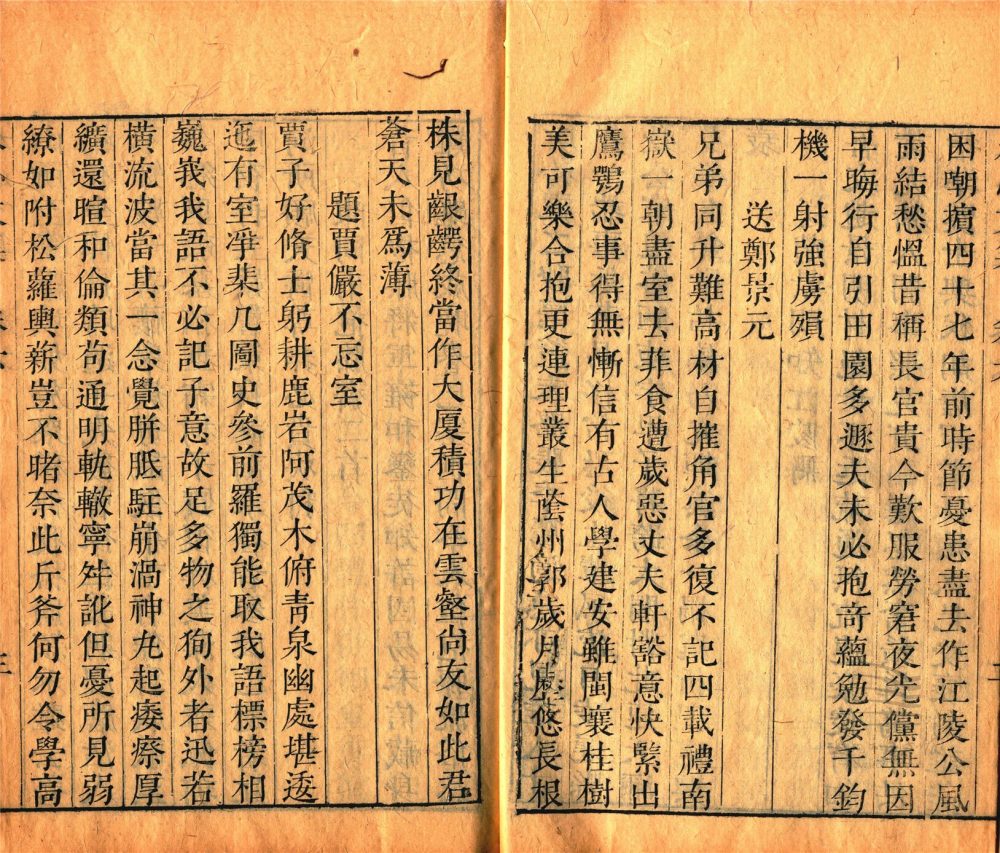 困嘲擯四十七年前時節憂患盡去作江陵公風
雨結愁慍昔稱長官貴今歎服勞窘夜光儻無因
早晦行自引田園多遯夫未必抱奇蘊勉發千鈞
機一射強虜殞
送鄭景元
兄弟同升難高材自摧角官多復不記四載禮南
嶽一朝盡室去菲食遭歲惡丈夫軒豁意快緊出
鷹鶚忍事得無慚信有古人學建安雖閩壤桂樹
美可樂合抱更連理叢生蔭州郭歲月屢悠長根
株見齦齶終當作大厦積功在雲壑尙友如此君
蒼天未爲薄
題賈儼不忘室
賈子好脩士躬耕鹿岩阿茂木俯靑泉幽處堪逶
迤有室淨棐几圖史參前羅獨能取我語標榜相
巍峩我語不必記子意故足多物之狥外者迅若
橫流波當其一念覺胼胝駐崩渦神丸起痿瘵厚
纊還暄和倫類苟通明軌轍寧舛訛但憂所見弱
繚如附松蘿輿薪豈不睹奈此斤斧何勿令學高